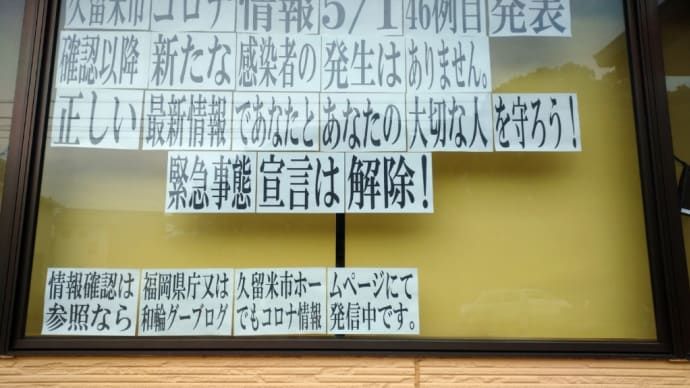 久留米市コロナ情報5/1 46例目発表
確認以降新たな感染者の発生はありません。
正しい最新情報であなたとあなたの大切な人を守ろう！
緊急事態宣言は解除！
情報確認は福岡県庁又は久留米市ホームページにて
参照なら和輪グーブログでもコロナ情報発信中です。